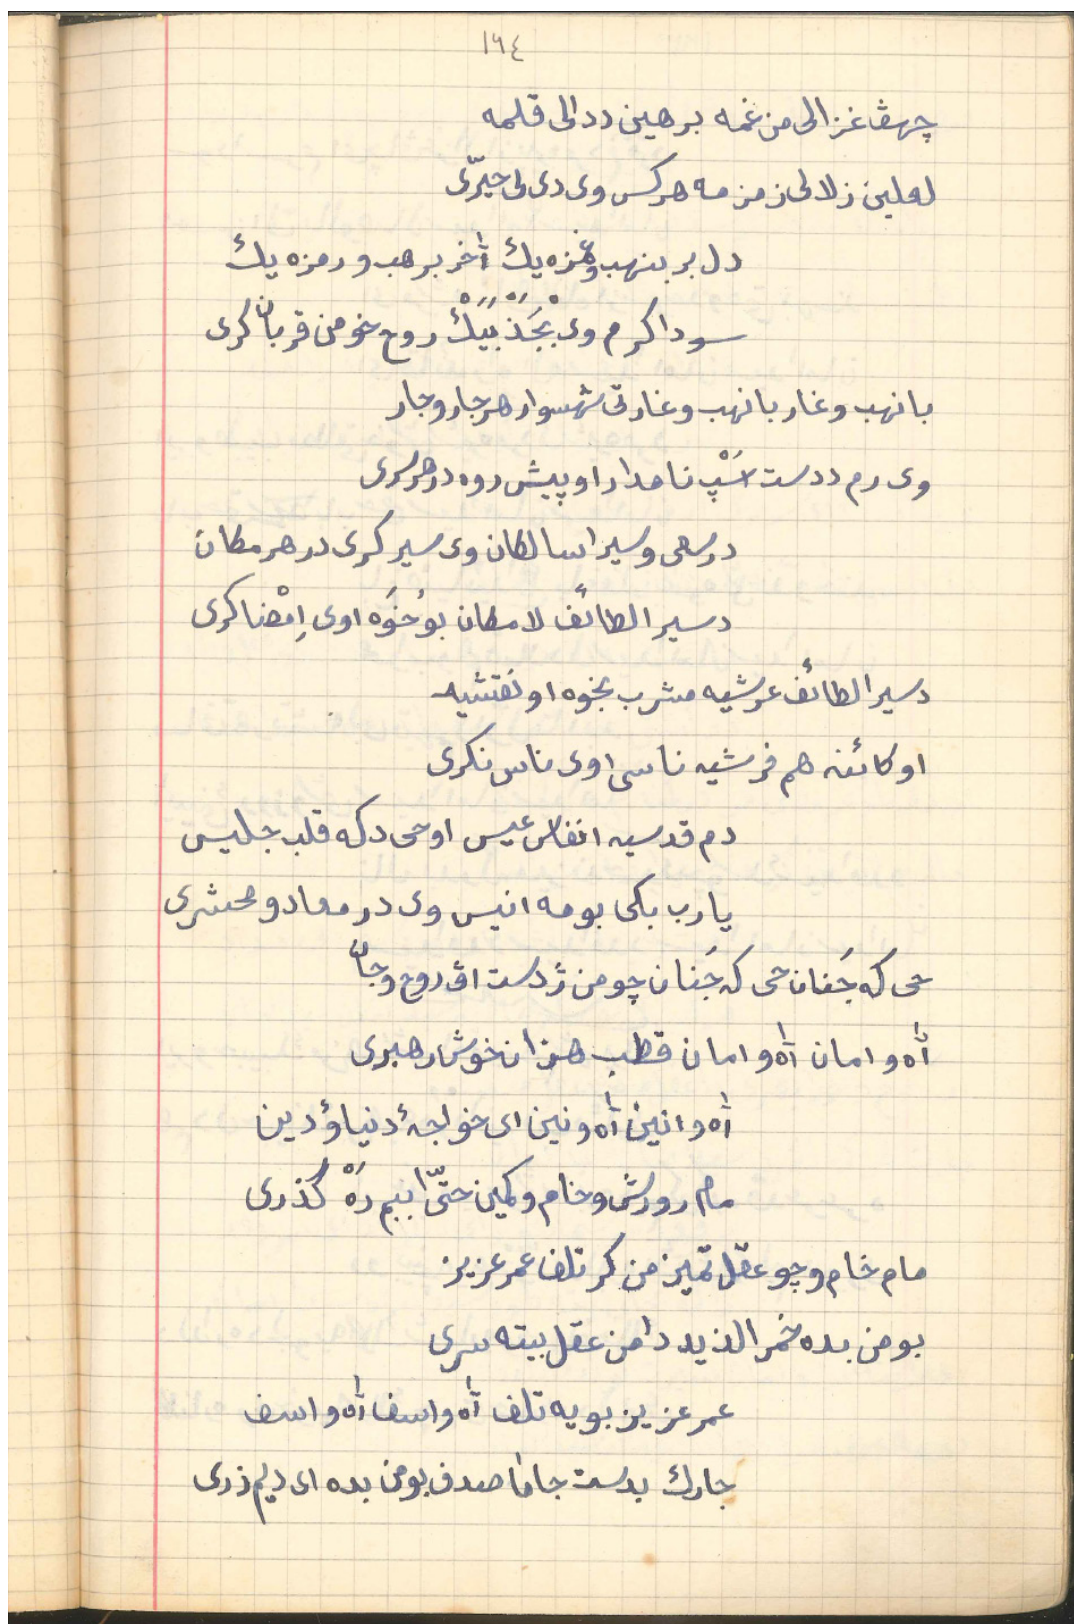 ١٩٤
چهڤ غزالی من غمه برهین ددالی قلمه
لعلین زلالی زمزمه هرکس وی دی لی حیرّی
دل بر بنهب وغمزه یك آخر برهب و رمزه یك
سودا کرم وی بْجَذْبَیَكْ روح خو من قربان کری
با نهب وغار با نهب وغارتی شهسوار هر جار وجار
وی رم ددست اسْپ نامدار او پیش روه درهر سری
درسعی وسیرا سالکان وی سیر کری در هر مکان
دسیر الطائف لامکان بوُخوَه اوی اِمْضا کری
دسیر الطائف عرشیه مشرب بخوه او نقشیه
او کائنه هم فرشیه ناسی اوی ناس نکری
دم قدسیه انفاس عیس او حی دکه قلب جلیس
یارب بکی بو مه انیس وی در معاد و محشری
حی که جَنان حی که جَنان چو من ژدست اڤ روح وجان
آه و امان آه و امان قطب هزان خوش رهبری
آه و انین آه ونین ای خواجهٔ دنیا ؤ دین
مام رورش وخام وکمین حتّا ببم رَهْ گذری
مام خام وچو عقل تمیز من کر تلف عمر عزیز
بو من بده خمر الذید دا من عقل بیته سری
عمر عزیز بویه تلف آه واسف آه واسف
جارك بدست جاما صدف بو من بده ای دیم ذری